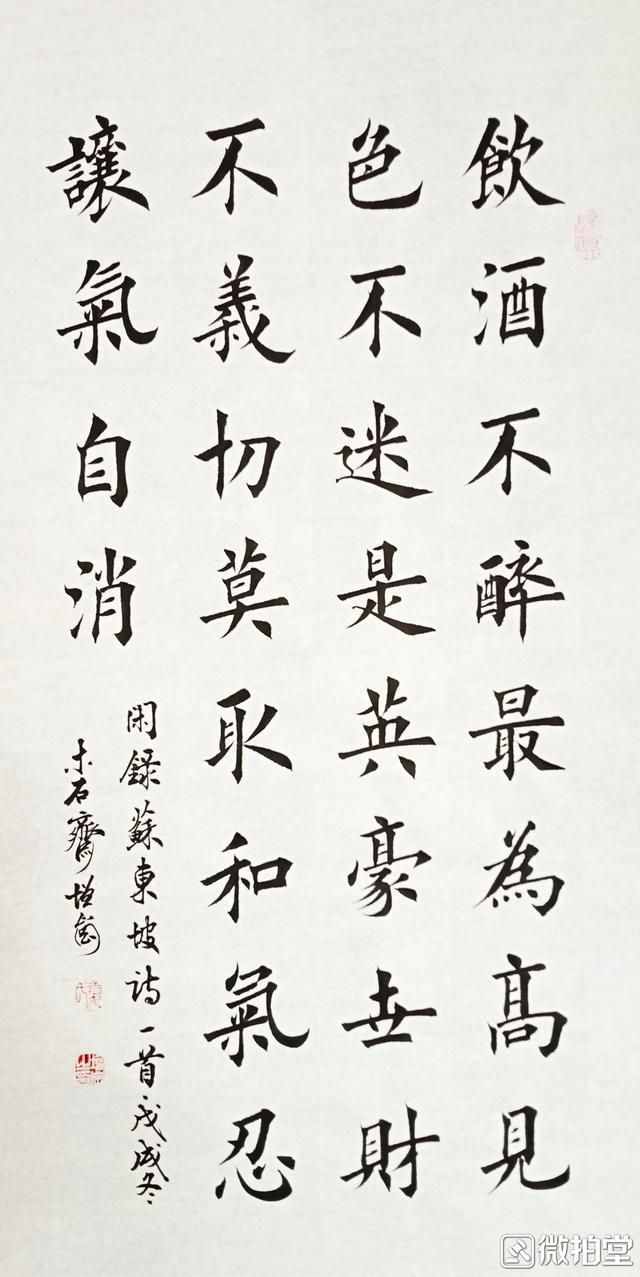 飲酒不醉最為高見
色不迷是英豪世財
不義切莫取和氣忍
讓氣自消
閑錄蘇東坡詩一首戊戌冬
石齋
微拍堂